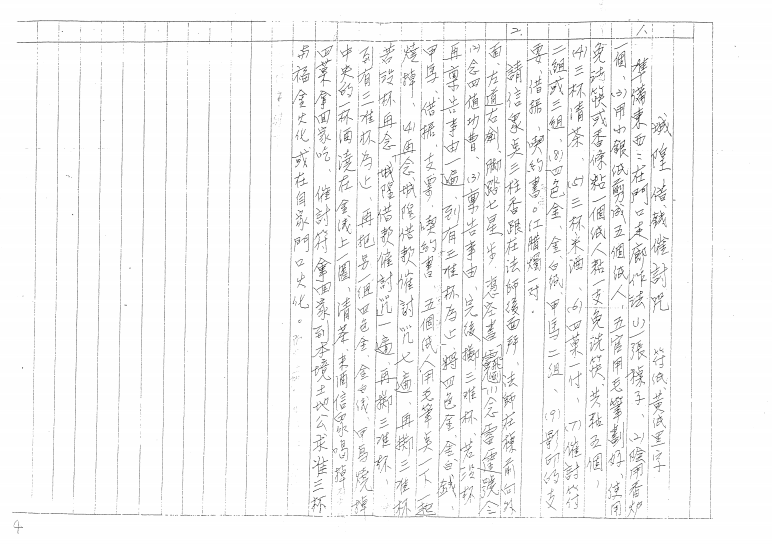 城隍借錢催討咒　符低黃低黑字
1、準備東西：在門口走廊作法(1)一張棹子、(2)陰用香炉
一個、(3)用小銀低剪成五個低人、五官用毛筆劃好、使用
免洗筷或香條黏一個低人黏一支免洗筷、共黏五個、
(4)三杯清茶、(5)三杯米酒、(6)四菓一付、(7)催討符
二組或三組(8)四色金、金白低、甲馬二組、(9)影印的支
要、借据、契約書。江腊燭一対。
2、請信眾点三柱香跟在法師後面所、法師在棹前向外
面左道右劍、脚踏七星步、憑空書(1)念雷霆號令
(2)念四值功曹(3)稟告事由、完後擲三准杯、若沒杯
再稟告事由一遍、到有三准杯為止、將四色金、金白錢、
甲馬、借据、支票、契約書、五個低人用毛筆点一下、一起
燒掉、(4)再念城隍借款催討咒七遍、再擲三准杯
若沒杯再念、城隍借款催討咒一遍、再擲三准杯、
到有三准杯為止、再把另一組四色金、金白錢、甲馬燒掉
中央的一杯酒澆在金錢上一圈、清茶、米酒信眾喝掉
四菓拿回家吃、催討符拿回家到本境土地公求准三杯
与福金火化或在自家門口火化。
4